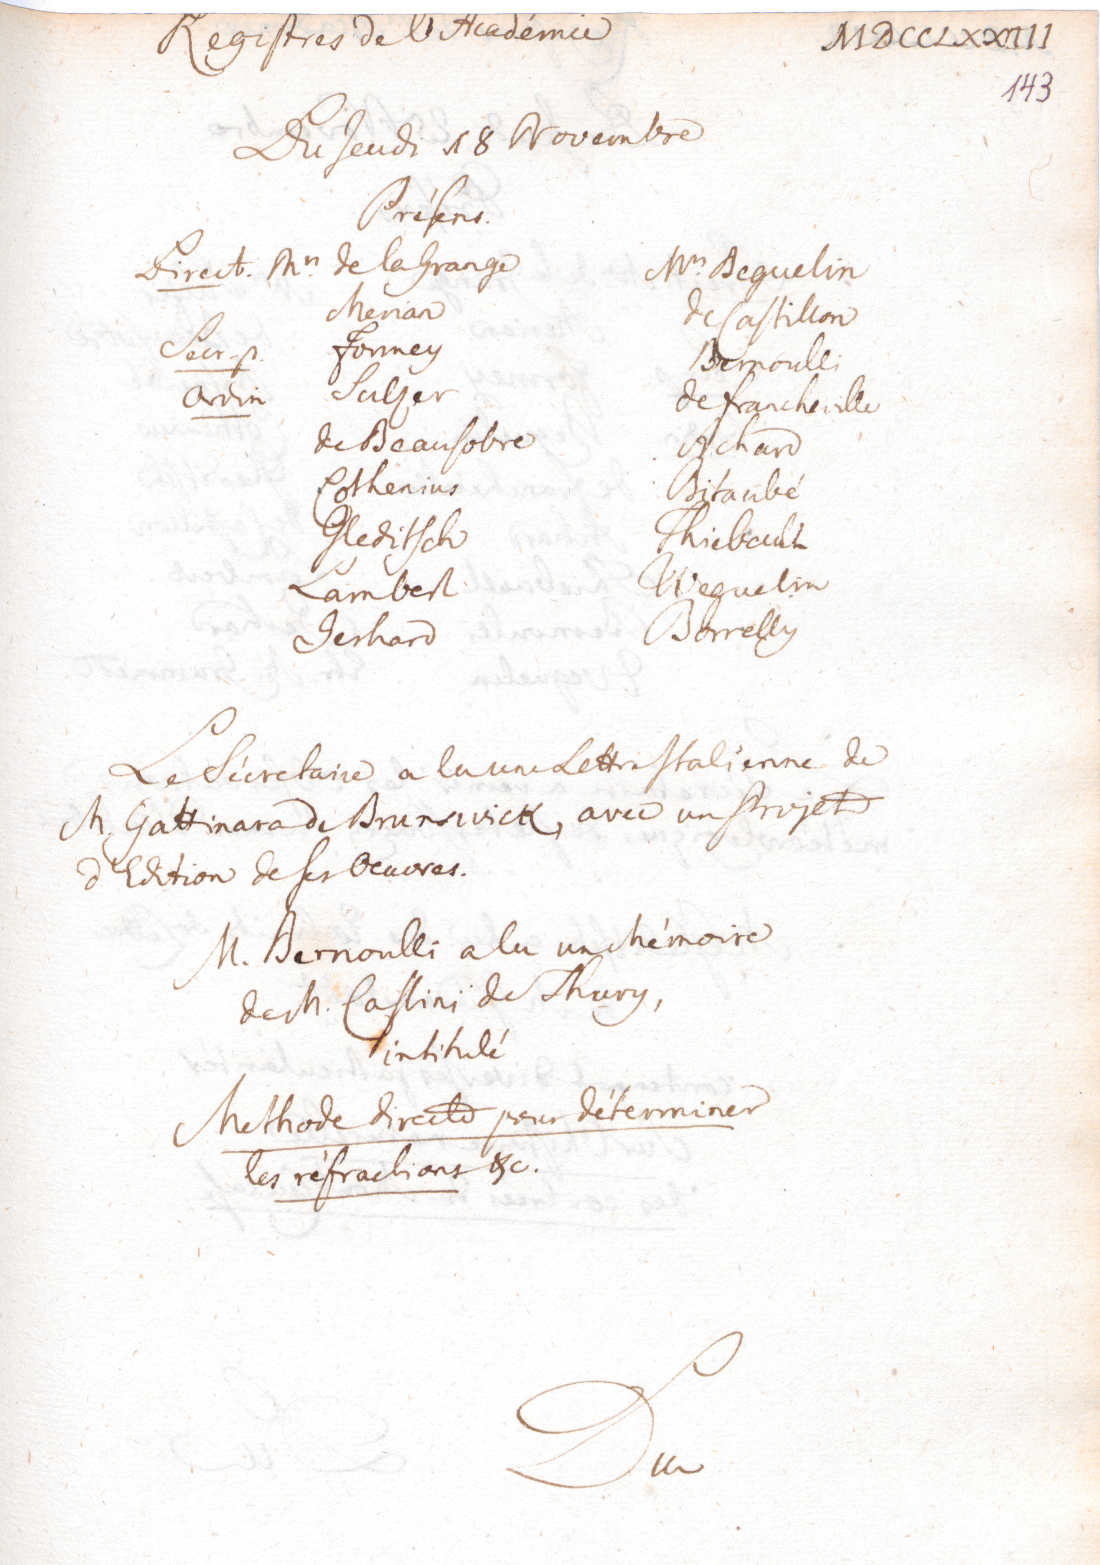 Registres de l'Académie MDCCLXXIII
143
Du Jeudi 18 Novembre
Présens.
Direct. Mrs de la Grange Mrs Beguelin
Merian de Castillon
Secr. p. Formey Bernoulli
Ordin Sulzer de Francheville
de Beausobre Achard
Cothenius Bitaubé
Gleditsch Thiebault
Lambert Weguelin
Gerhard Borrelly
Le Sécretaire a lu une Lettre Italienne de
M. Gattinara de Brunswick, avec un Projet
d'Edition de ses Oeuvres.
M. Bernoulli a lu un Mémoire
de M. Cassini de Thury,
intitulé
Methode directe pour déterminer
les réfractions &c.
Du